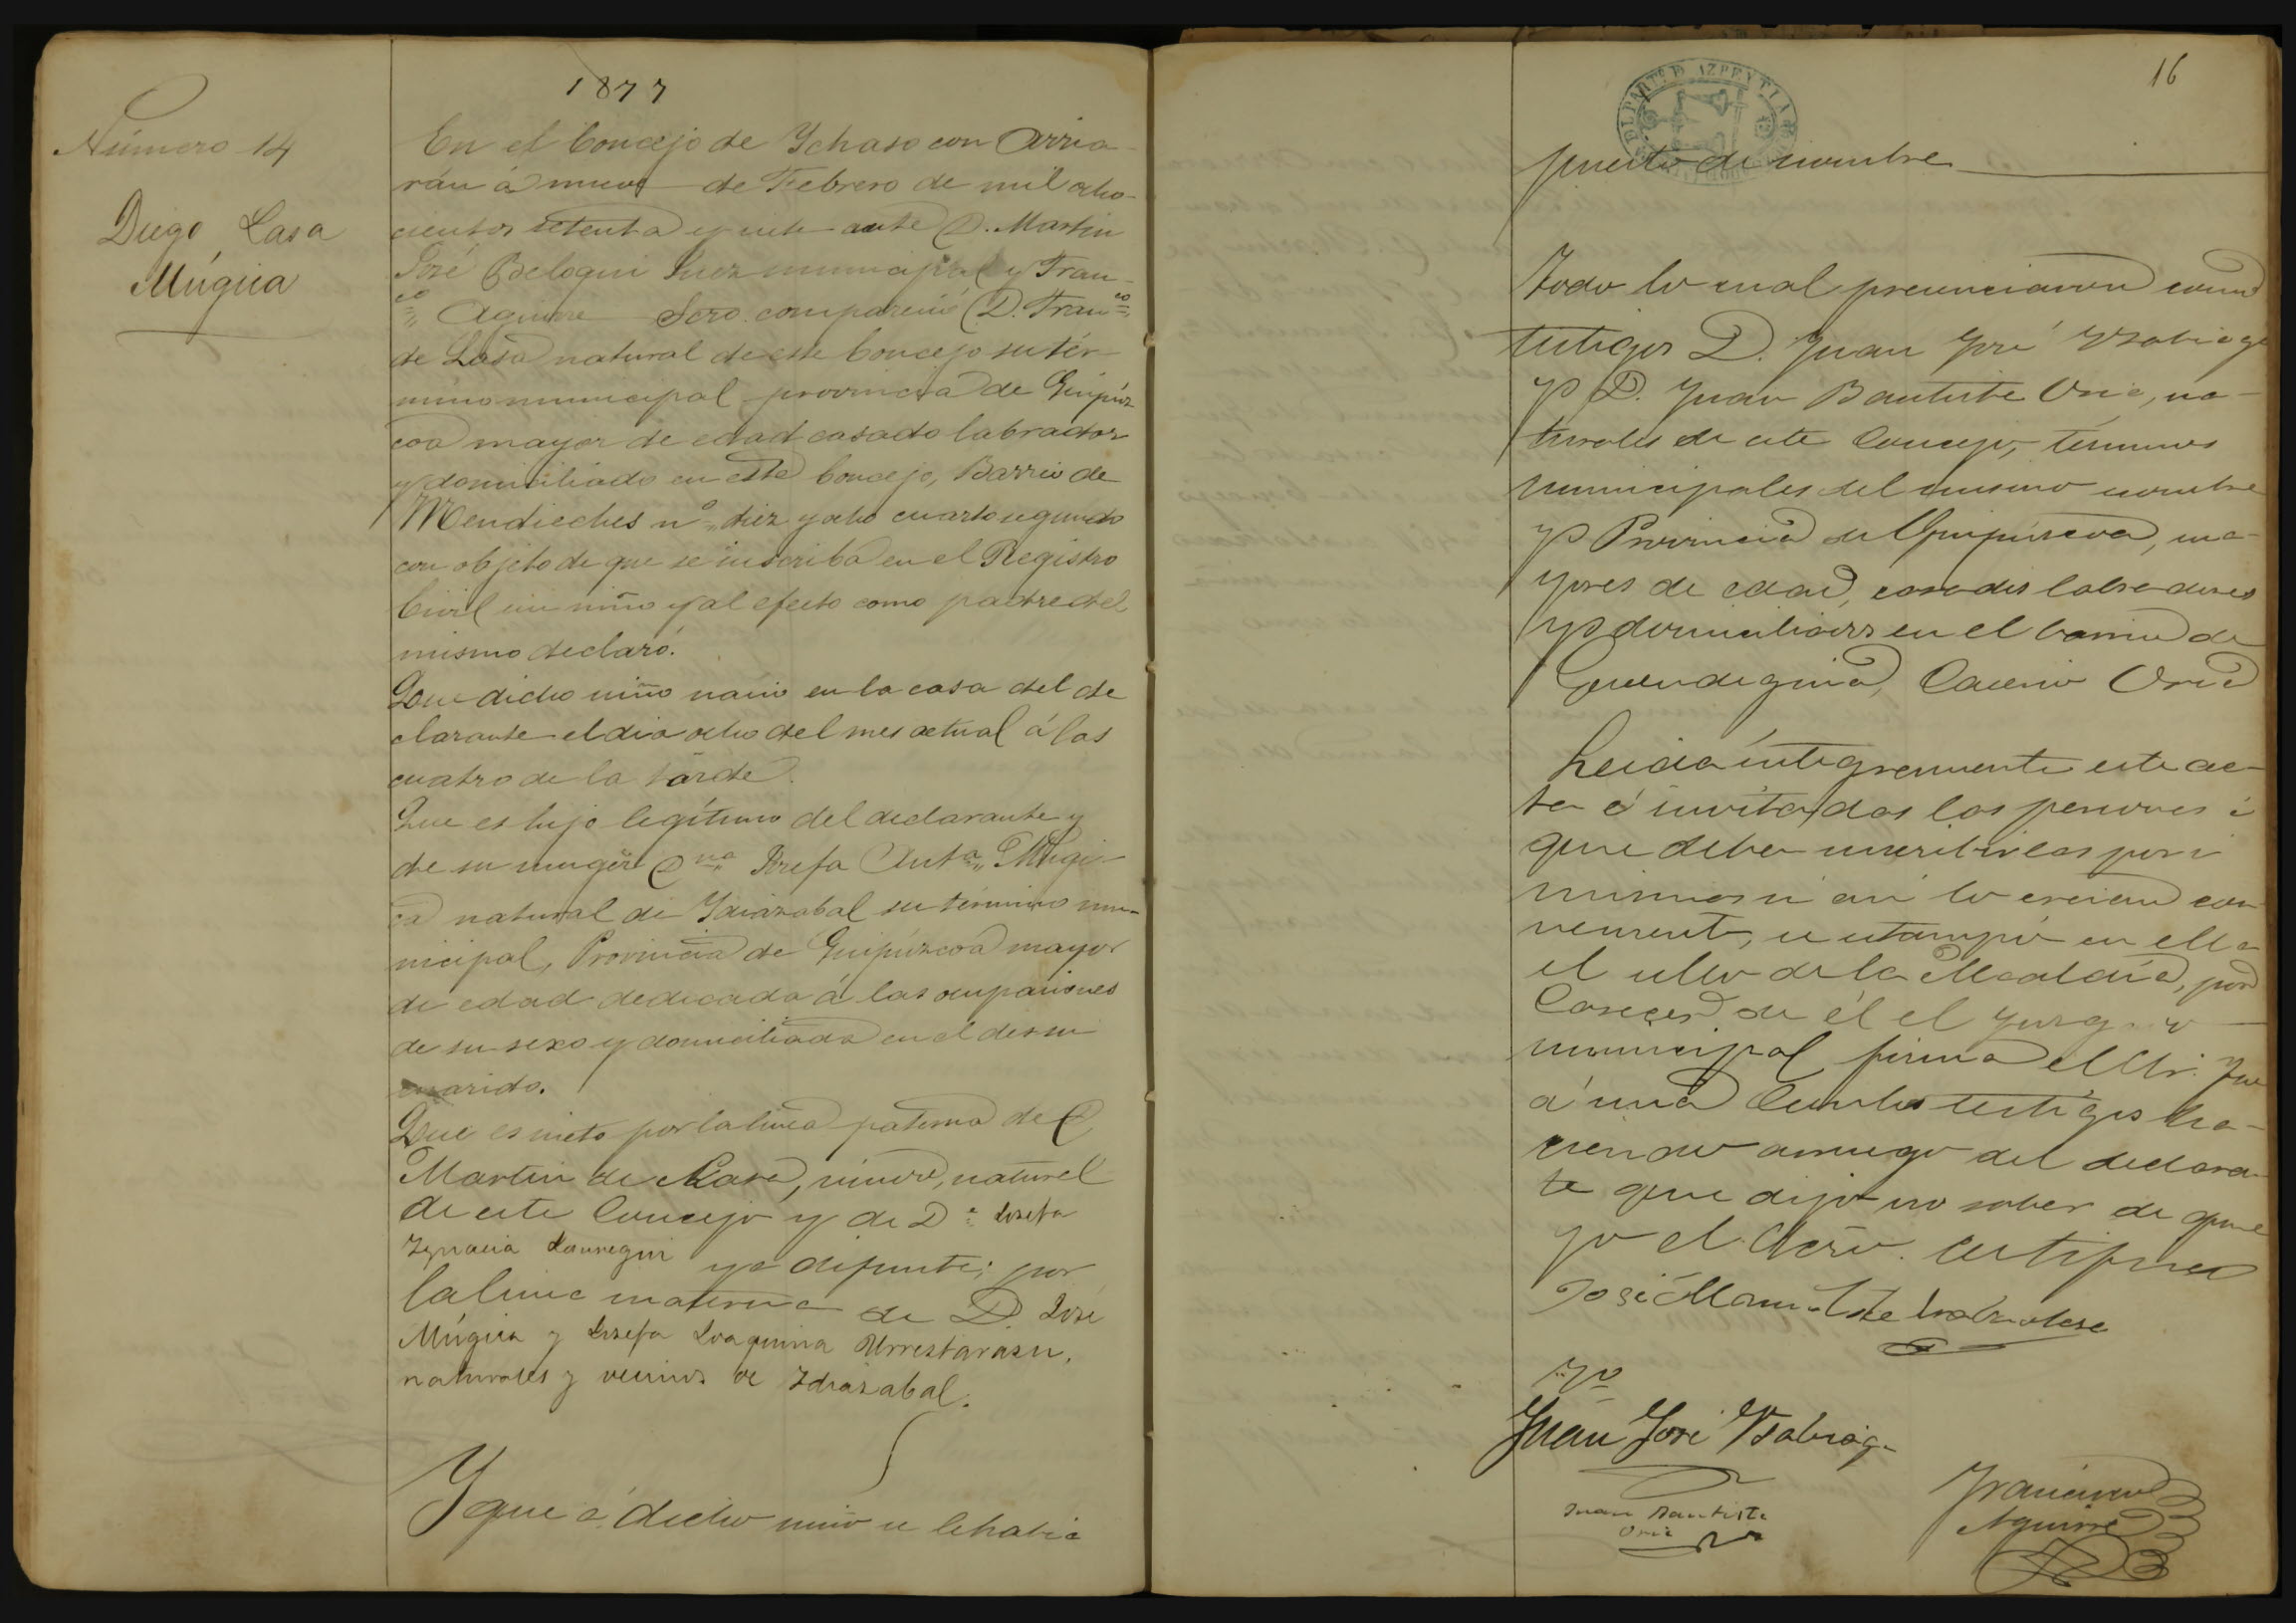 1877
Número 14
Diego Lasa
Múgica
En el Concejo de Ychaso con Arria-
rán á nueve de Febrero de mil ocho-
cientos setenta y siete ante D. Martin
José Beloqui Juez municipal y Fran-
co Aguirre Scro. compareció D. Franco
de Lasa natural de este Concejo su tér-
mino municipal provincia de Guipúz
coa mayor de edad casado labrador
y domiciliado en este Concejo, Barrio de
Mendieches nº diez y ocho cuarto segundo
con objeto de que se inscriba en el Registro
Civil un niño y al efecto como padre del
mismo declaró.
Que dicho niño nació en la casa del de
clarante el dia ocho del mes actual á las
cuatro de la tarde.
Que es hijo legítimo del declarante y
de su muger Dna Josefa Anta Mugi-
ca natural de Ydiazabal su término mu-
nicipal, Provincia de Guipúzcoa mayor
de edad dedicada á las ocupaciones
de su sexo y domiciliada en el de su
marido.
Que es nieto por la linea paterna de D
Martin de Lasa, viudo, natural
de este Concejo y de Dª Josefa
Ygnacia Jauregui ya difunta; por
la linea materna de D. José
Múgica y Josefa Joaquina Urrestarazu,
naturales y vecinos de Idiazabal.
Y que á dicho niño se le habia
16
DEPARTº D AZPEYTIA
puesto de nombre
Todo lo cual presenciaron como
testigos D. Juan José Ysabiaga
y D. Juan Bautista Oria, na-
turales de este Concejo, términos
municipales del mismo nombre
y Provincia de Guipúzcoa, ma-
yores de edad, casados labradores
y domiciliados en el barrio de
Caserio Oria
Leida íntegramente este ac-
ta é invitadas las personas á
que deben suscribirlas por si
mismas si asi lo creian con
veniente, se estampó en ella
el sello de la Alcaldía, por
carecer de él el Juzgado
municipal firma el Sr. Jue
á una con los testigos ha-
ciendo a ruego del declaran-
te que dijo no saber de que
yo el Scrio. certifico
José Manuel de
Yo
Juan José Ysabiaga
Juan Bautista
Oria
Francisco
Aguirre